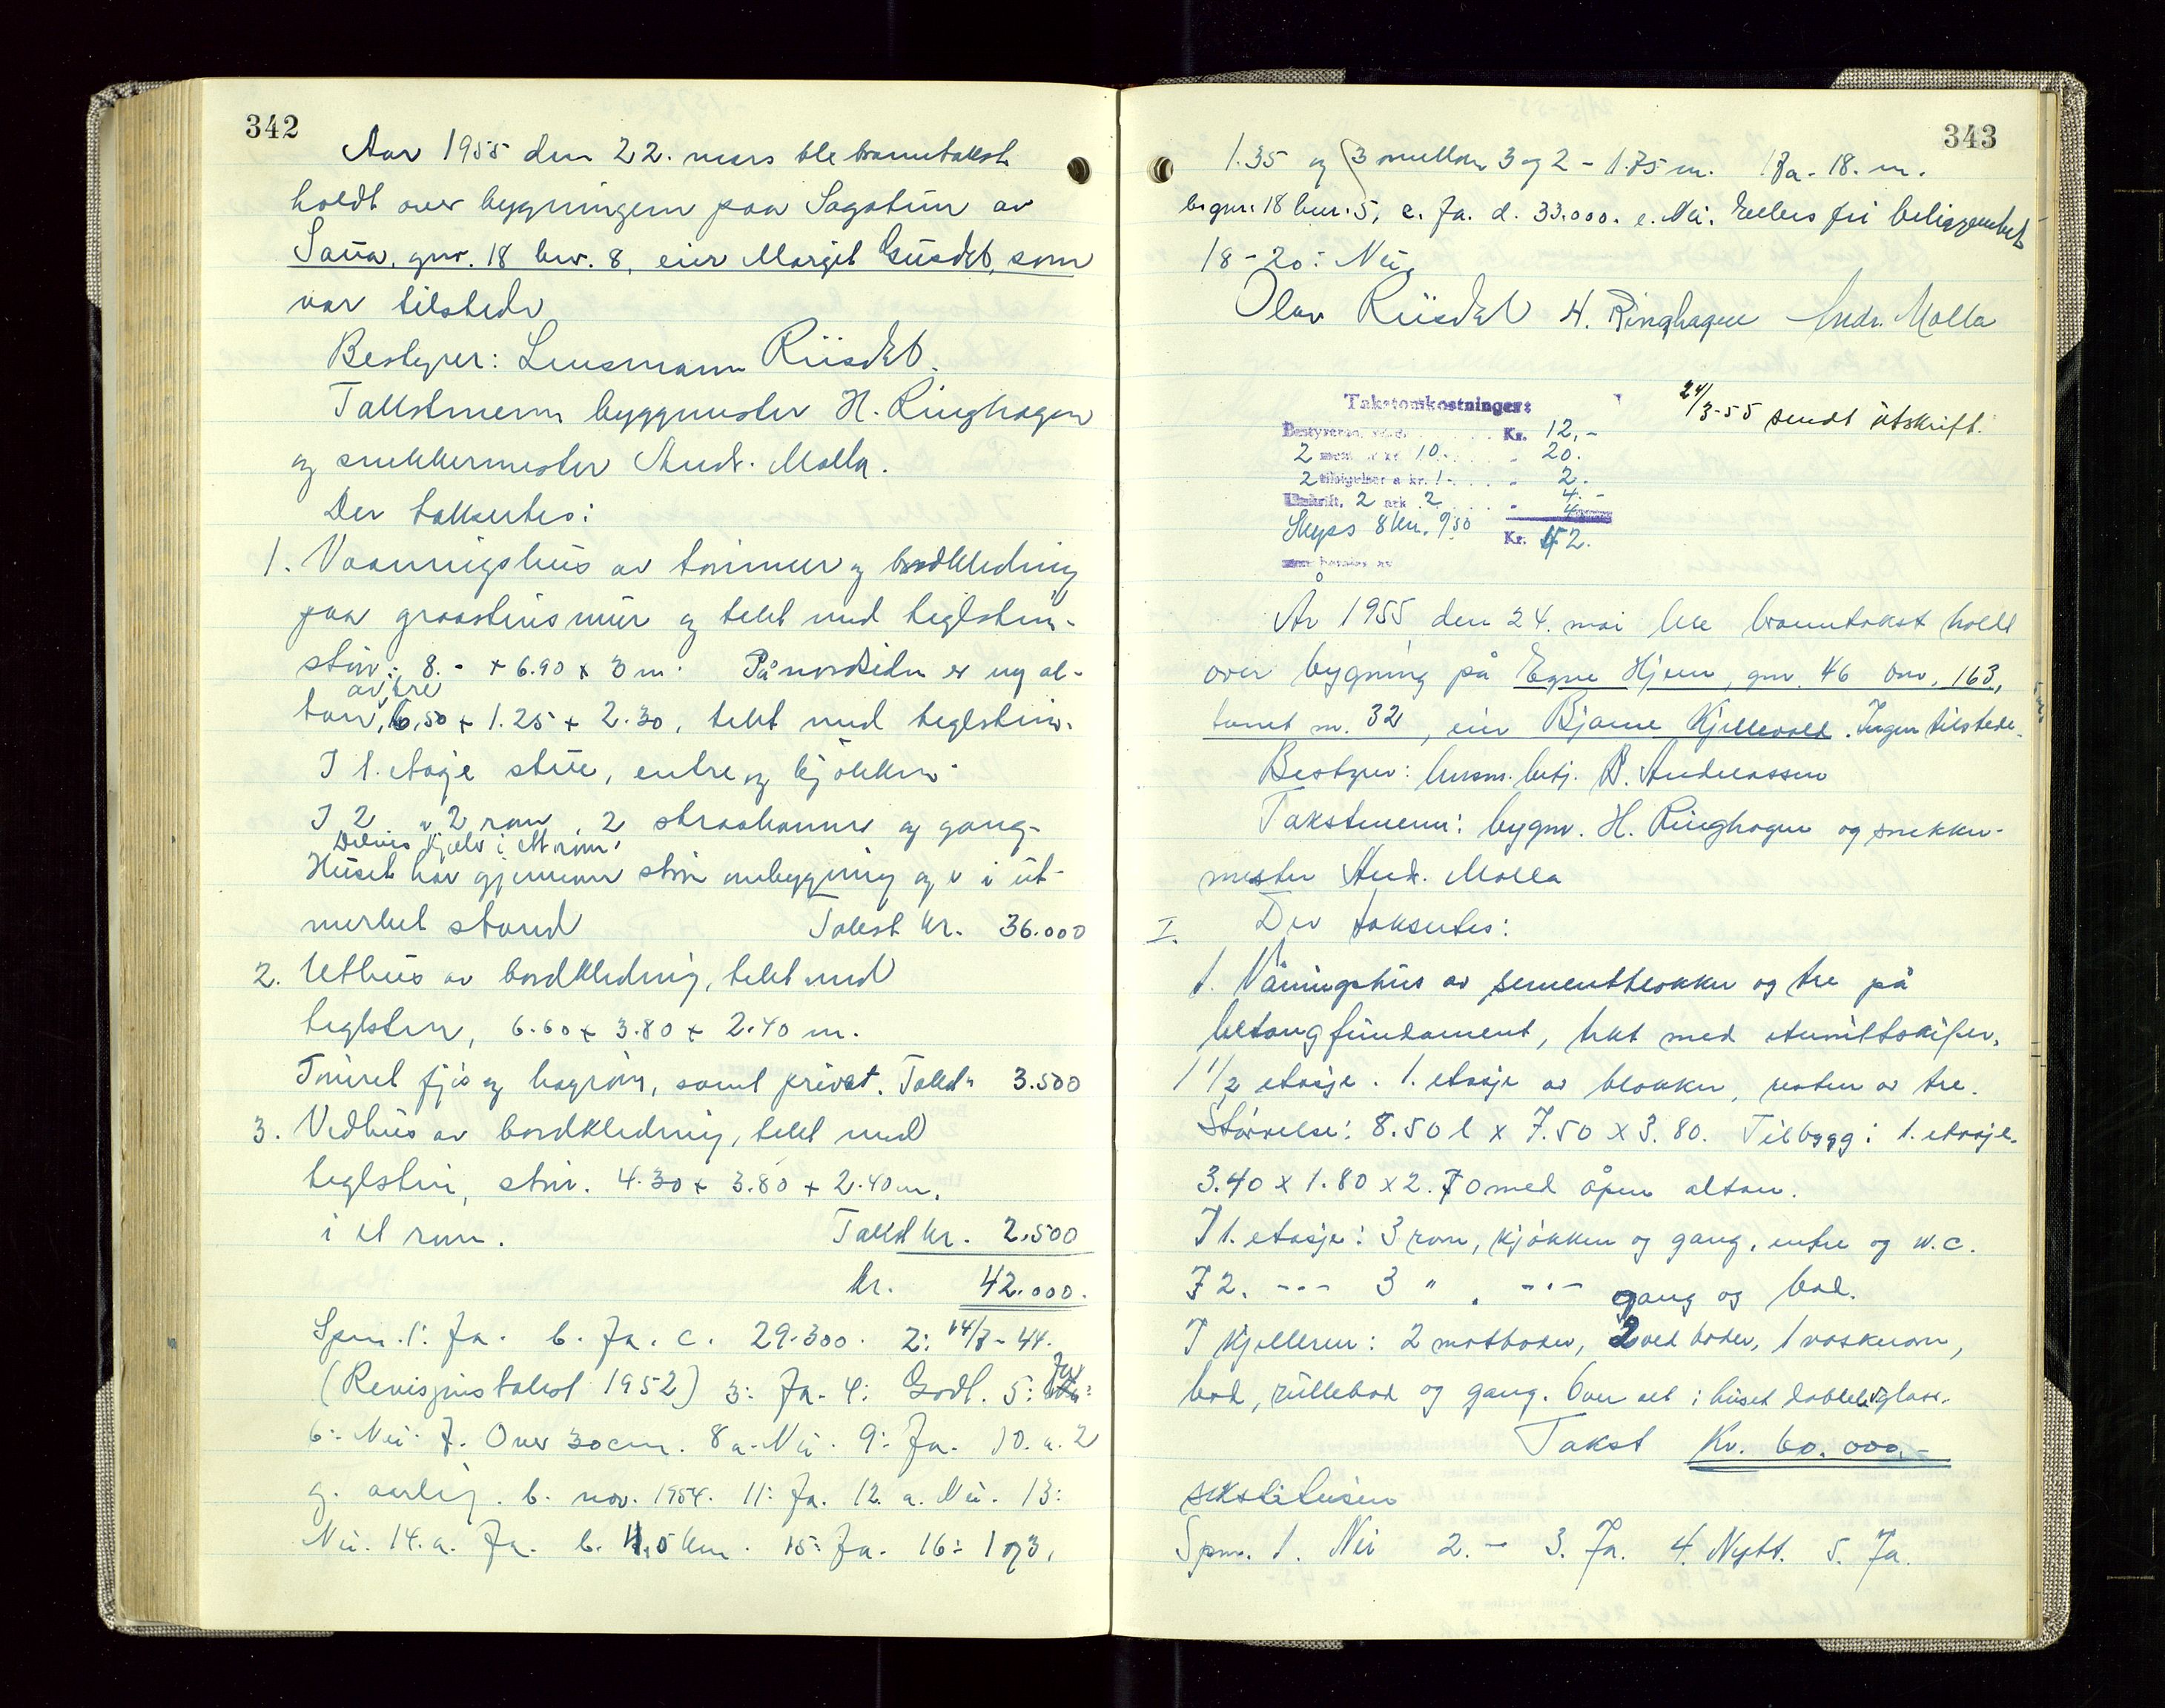 342
Aar 1955 den 22. mars ble branntakst
holdt over bygningen paa Sagatun av
Saua, gnr. 18 bnr. 8, eier Margit som
var tilstede
Bestyrer: Lensmann Riisdal.
Takstmenn byggmester H. Ringhagen
og snekkermester Andr. Molla.
Der taksertes:
1. Vaaningshus av tømmer og bordkledning
paa graasteinsmur og tekt med teglstein.
størr: 8.- + 6.90 x 3 m. På nordsiden er ny al-
av tre
tan, 6,50 + 1.25 + 2.30, tekt med teglstein.
I 1. etasje stue, entre og kjøkken.
I 2 " 2 rom, 2 og gang.
Delvis kjeller i ett rom.
Huset har gjennom ombygging og er i ut-
merket stand Takst kr. 36.000
2. Uthus av bordkledning, tekt med
teglstein, 6.60 + 3.80 + 2.40 m.
fjøs og høyrom, samt privat. Takst " 3.500
3. Vedhus av bordkledning, tekt med
teglstein, størr. 4.30 + 3.80 + 2.40 m.
i et rom. Takst kr. 2.500
kr. 42.000.
Spm. 1: Ja. b. Ja. c. 29.300. 2: 14/7-44.
(Revisjonstakst 1952) 3: Ja. 4: Godt. 5: Ja
6: Nei. 7. Over 30 cm. 8 a. Nei. 9: Ja. 10. a. 2
g. aarlig. b. nov. 1954. 11: Ja. 12. a. Nei. 13:
Nei. 14. a. Ja. b. km. 15: Ja. 16: 1 og 3,
343
1.35 og 3 mellom 3 og 2 - 1.75 m. 17a. 18. m.
b. gnr. 18 bnr. 5, c. Ja. d. 33.000. e. Nei. Ellers fri beliggenhet
18-20: Nei.
Olav Riisdal H. Ringhagen Andr. Molla
Takstomkostninger:
24/3-55 sendt utskrift.
Bestyreren, Kr. 12,-
2 menn a kr 10. " 20.
2 tilsigelser a kr. 1- " 2.
Utskrift, 2 ark 2 " 4.-
Skyss 8 km. 4
Kr. 42.
som betales av
År 1955 den 24. mai ble branntakst holdt
over bygning på Egne Hjem, gnr. 46 bnr. 163,
tomt nr. 32, eier Bjarne Kjellevold. Ingen tilstede.
Bestyrer: lensm. betj. B. Andreassen
Takstmenn: bygm. H. Ringhagen og snekker-
mester And. Molla
I. Der taksertes:
1. Våningshus av sementblokker og tre på
betongfundament, tekt med eternittskifer,
1 1/2 etasje. 1. etasje av blokker, resten av tre.
Størrelse: 8.50 l x 7.50 x 3.80. Tilbygg i 1. etasje.
3.40 x 1.80 x 2.70 med åpen altan.
I 1. etasje: 3 rom, kjøkken og gang, entre og w.c.
I 2. --- 3 " . --- gang og bod.
I Kjelleren: 2 matboder, 2 ved boder, 1 vaskerom,
bod, rullebod og gang. Over alt i huset doble glass.
Takst Kr. 60.000,-
sekstitusen
Spm. 1. Nei 2. - 3. Ja. 4. Nytt. 5. Ja.